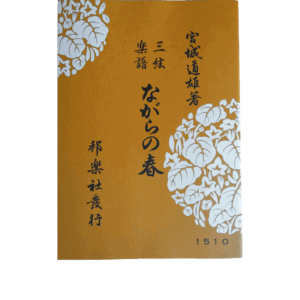 宮城道雄著
三絃
楽譜
ながらの春
邦楽社発行
1510